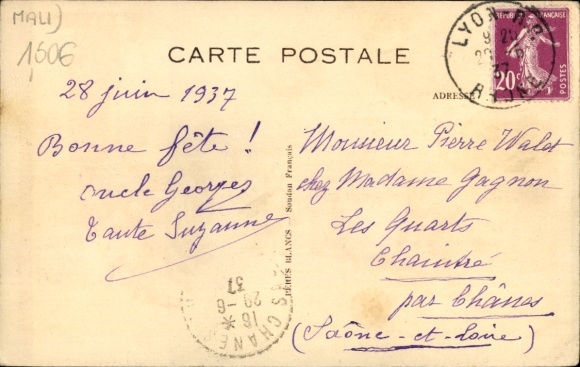 MALI)
1506
CARTE POSTALE
ADRESSE
RÉPUBLIQUE FRANÇAISE
20c
POSTES
LYON
RHONE
28 juin 1937
Bonne fête !
oncle Georges
Tante Suzanne
PÈRES BLANCS. Soudan Français
Monsieur Pierre Walet
chez Madame Gagnon
Les Quarts
Chaintré
par Chânes
(Saône-et-Loire)
CHANES
16 *
29-6
37